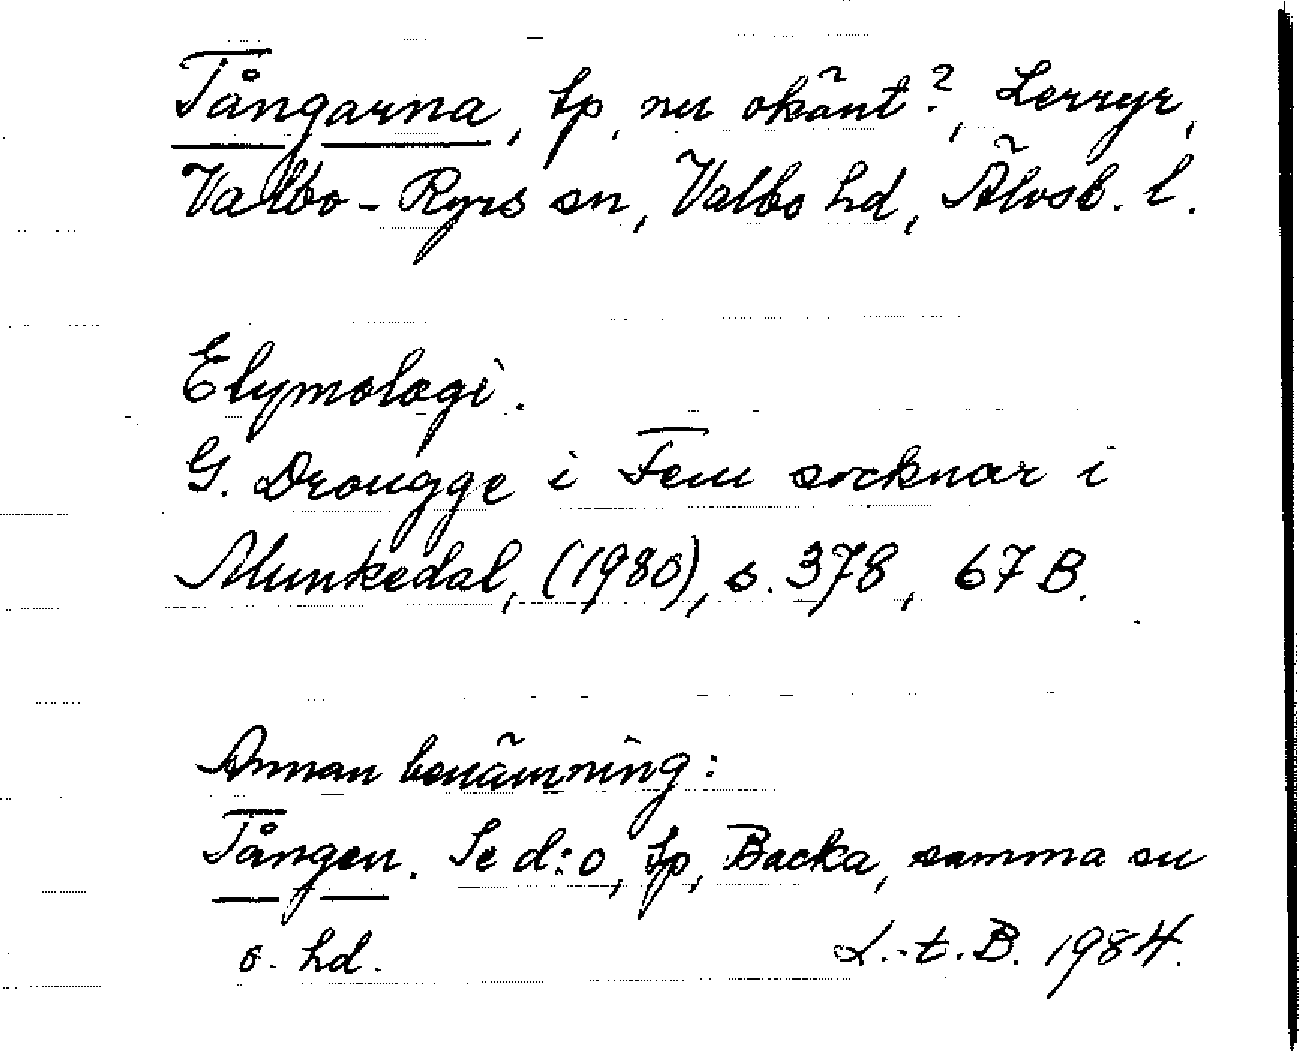 Tångarna, tp, nu okänt?, Lerryr,
Valbo-Ryrs sn, Valbo hd, Älvsb. l.
Etymologi.
G. Drougge i Fem socknar i
Munkedal, (1980), s. 378, 67 B.
Annan benämning:
Tången. Se d:o, tp, Backa, samma sn
o. hd.
L.-t. B. 1984.